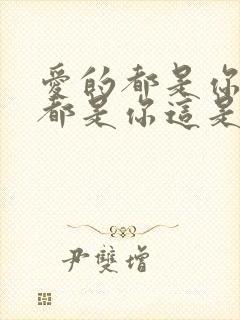 愛的都是你
都是你這是
尹雙增